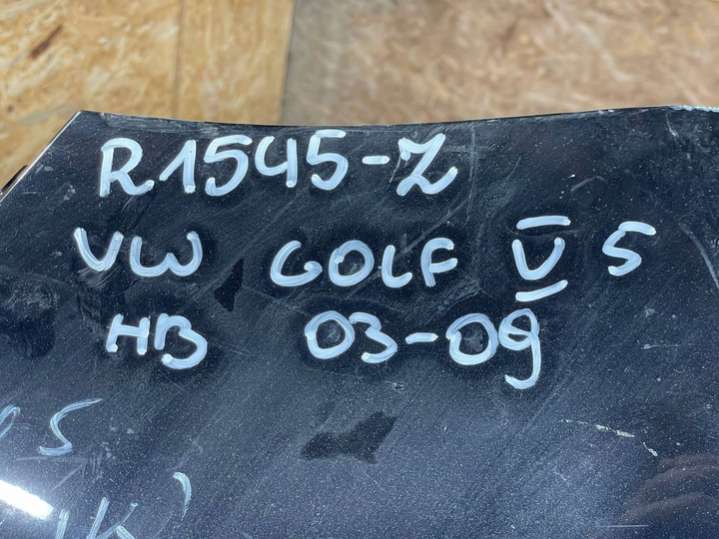 R1545-Z
VW GOLF V 5
HB 03-09